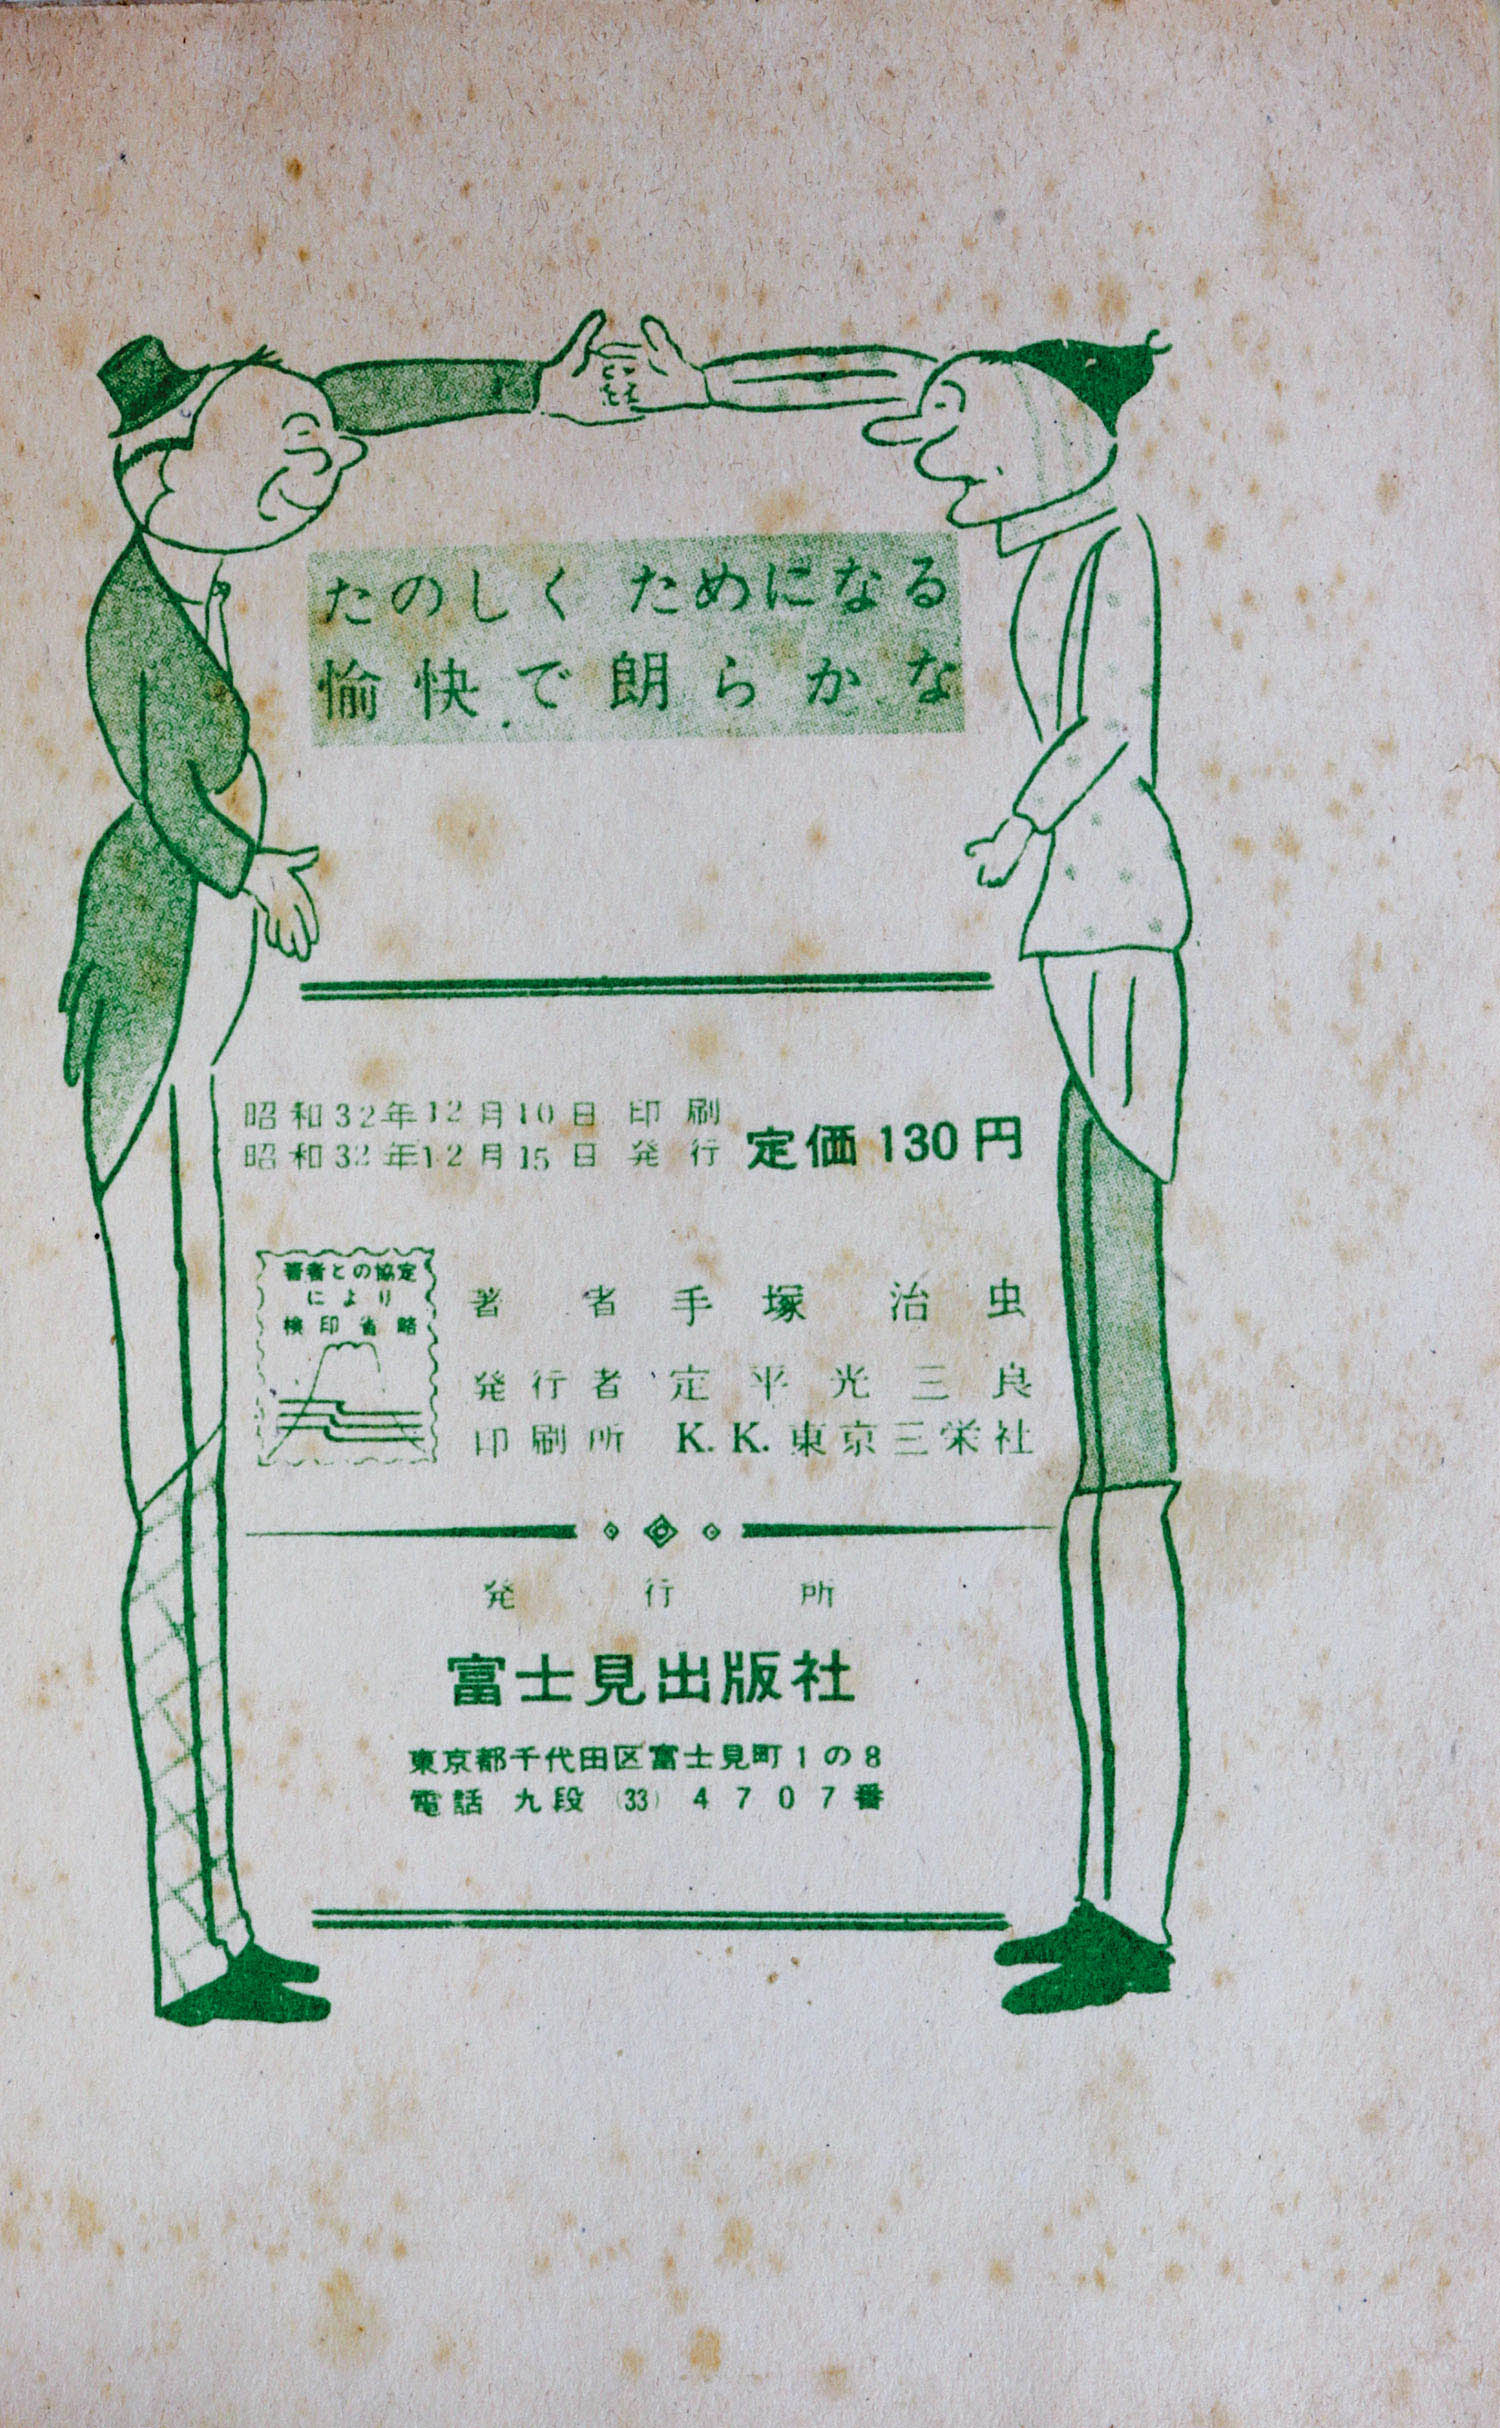 たのしく ためになる
愉快で朗らかな
昭和32年12月10日 印刷
昭和32年12月15日 発行
定価130円
著者との協定
により
検印省略
著者 手塚治虫
発行者 定平光三良
印刷所 K.K.東京三栄社
発行所
富士見出版社
東京都千代田区富士見町1の8
電話 九段 (33) 4707番